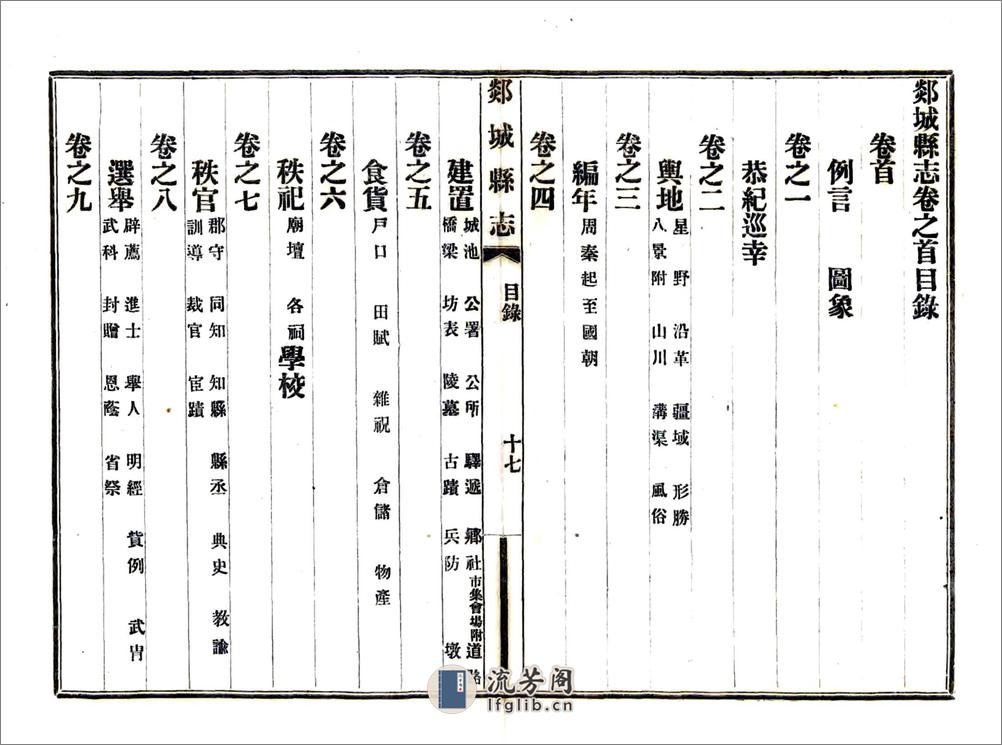 郯城縣志卷之首目錄
卷首
例言 圖象
卷之一
恭紀巡幸
卷之二
輿地 星野 沿革 疆域 形勝
八景附 山川 溝渠 風俗
卷之三
編年 周秦起至國朝
卷之四
郯城縣志 目錄 十七
建置 城池 公署 公所 驛遞 鄉社 市集會場附 道路
橋梁 坊表 陵墓 古蹟 兵防 墩
卷之五
食貨 戸口 田賦 雜祝 倉儲 物產
卷之六
秩祀 廟壇 各祠 學校
卷之七
秩官 郡守 同知 知縣 縣丞 典史 教諭
訓導 裁官 宦蹟
卷之八
選舉 辟薦 進士 舉人 明經 貲例 武冑
武科 封贈 恩蔭 省祭
卷之九
流芳阁
lfglib.cn